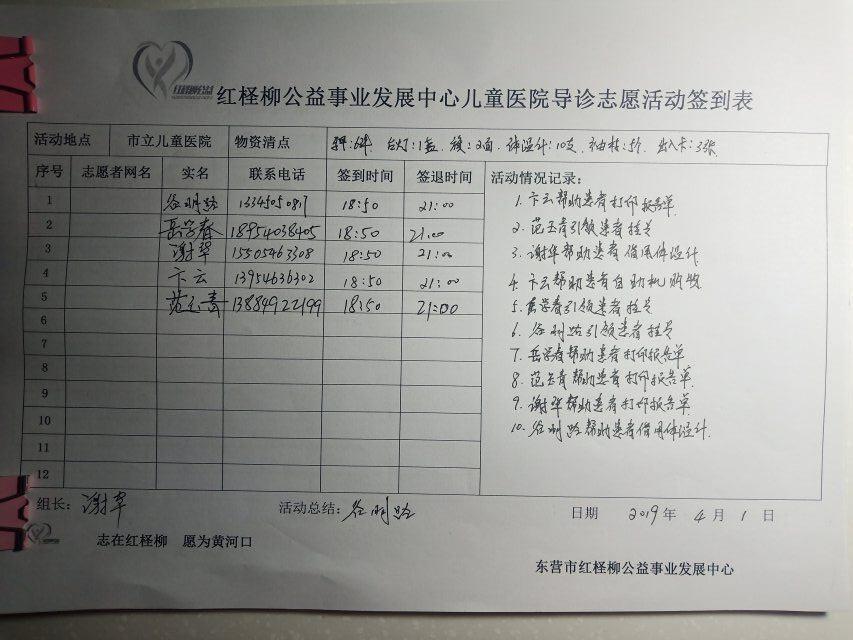 红柽柳公益
红柽柳公益事业发展中心儿童医院导诊志愿活动签到表
活动地点 市立儿童医院 物资清点 台灯:1盏 旗:2面 体温计:10支 出入卡:3张
序号 志愿者网名 实名 联系电话 签到时间 签退时间 活动情况记录:
1 谷明路 18:50 21:00
2 岳学春 18954038405 18:50 21:00
3 谢华 15505463308 18:50 21:00
4 卞云 13954636302 18:50 21:00
5 范玉青 13884922199 18:50 21:00
6
7
8
9
10
11
12
1. 卞云帮助患者打印报告单
2. 范玉青引领患者挂号
3. 谢华帮助患者借用体温计
4. 卞云帮助患者自助机
5. 岳学春引领患者挂号
6. 谷明路引领患者挂号
7. 岳学春帮助患者打印报告单
8. 范玉青帮助患者打印报告单
9. 谢华帮助患者打印报告单
10. 谷明路帮助患者借用体温计
组长: 谢华 活动总结: 谷明路 日期 2019 年 4 月 1 日
志在红柽柳 愿为黄河口
东营市红柽柳公益事业发展中心